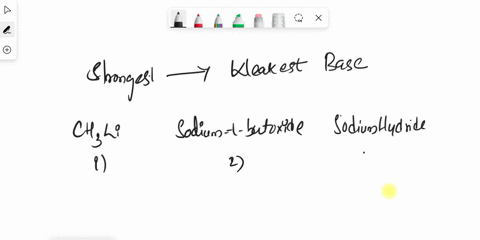 Strongest → Weakest Base
CH3Li Sodium-t-butoxide Sodium Hydride
1) 2)